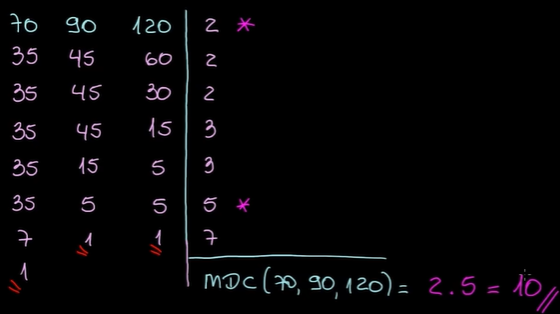 70 90 120 2 *
35 45 60 2
35 45 30 2
35 45 15 3
35 15 5 3
35 5 5 5 *
7 1 1 7
1
MDC(70, 90, 120) = 2.5 = 10//